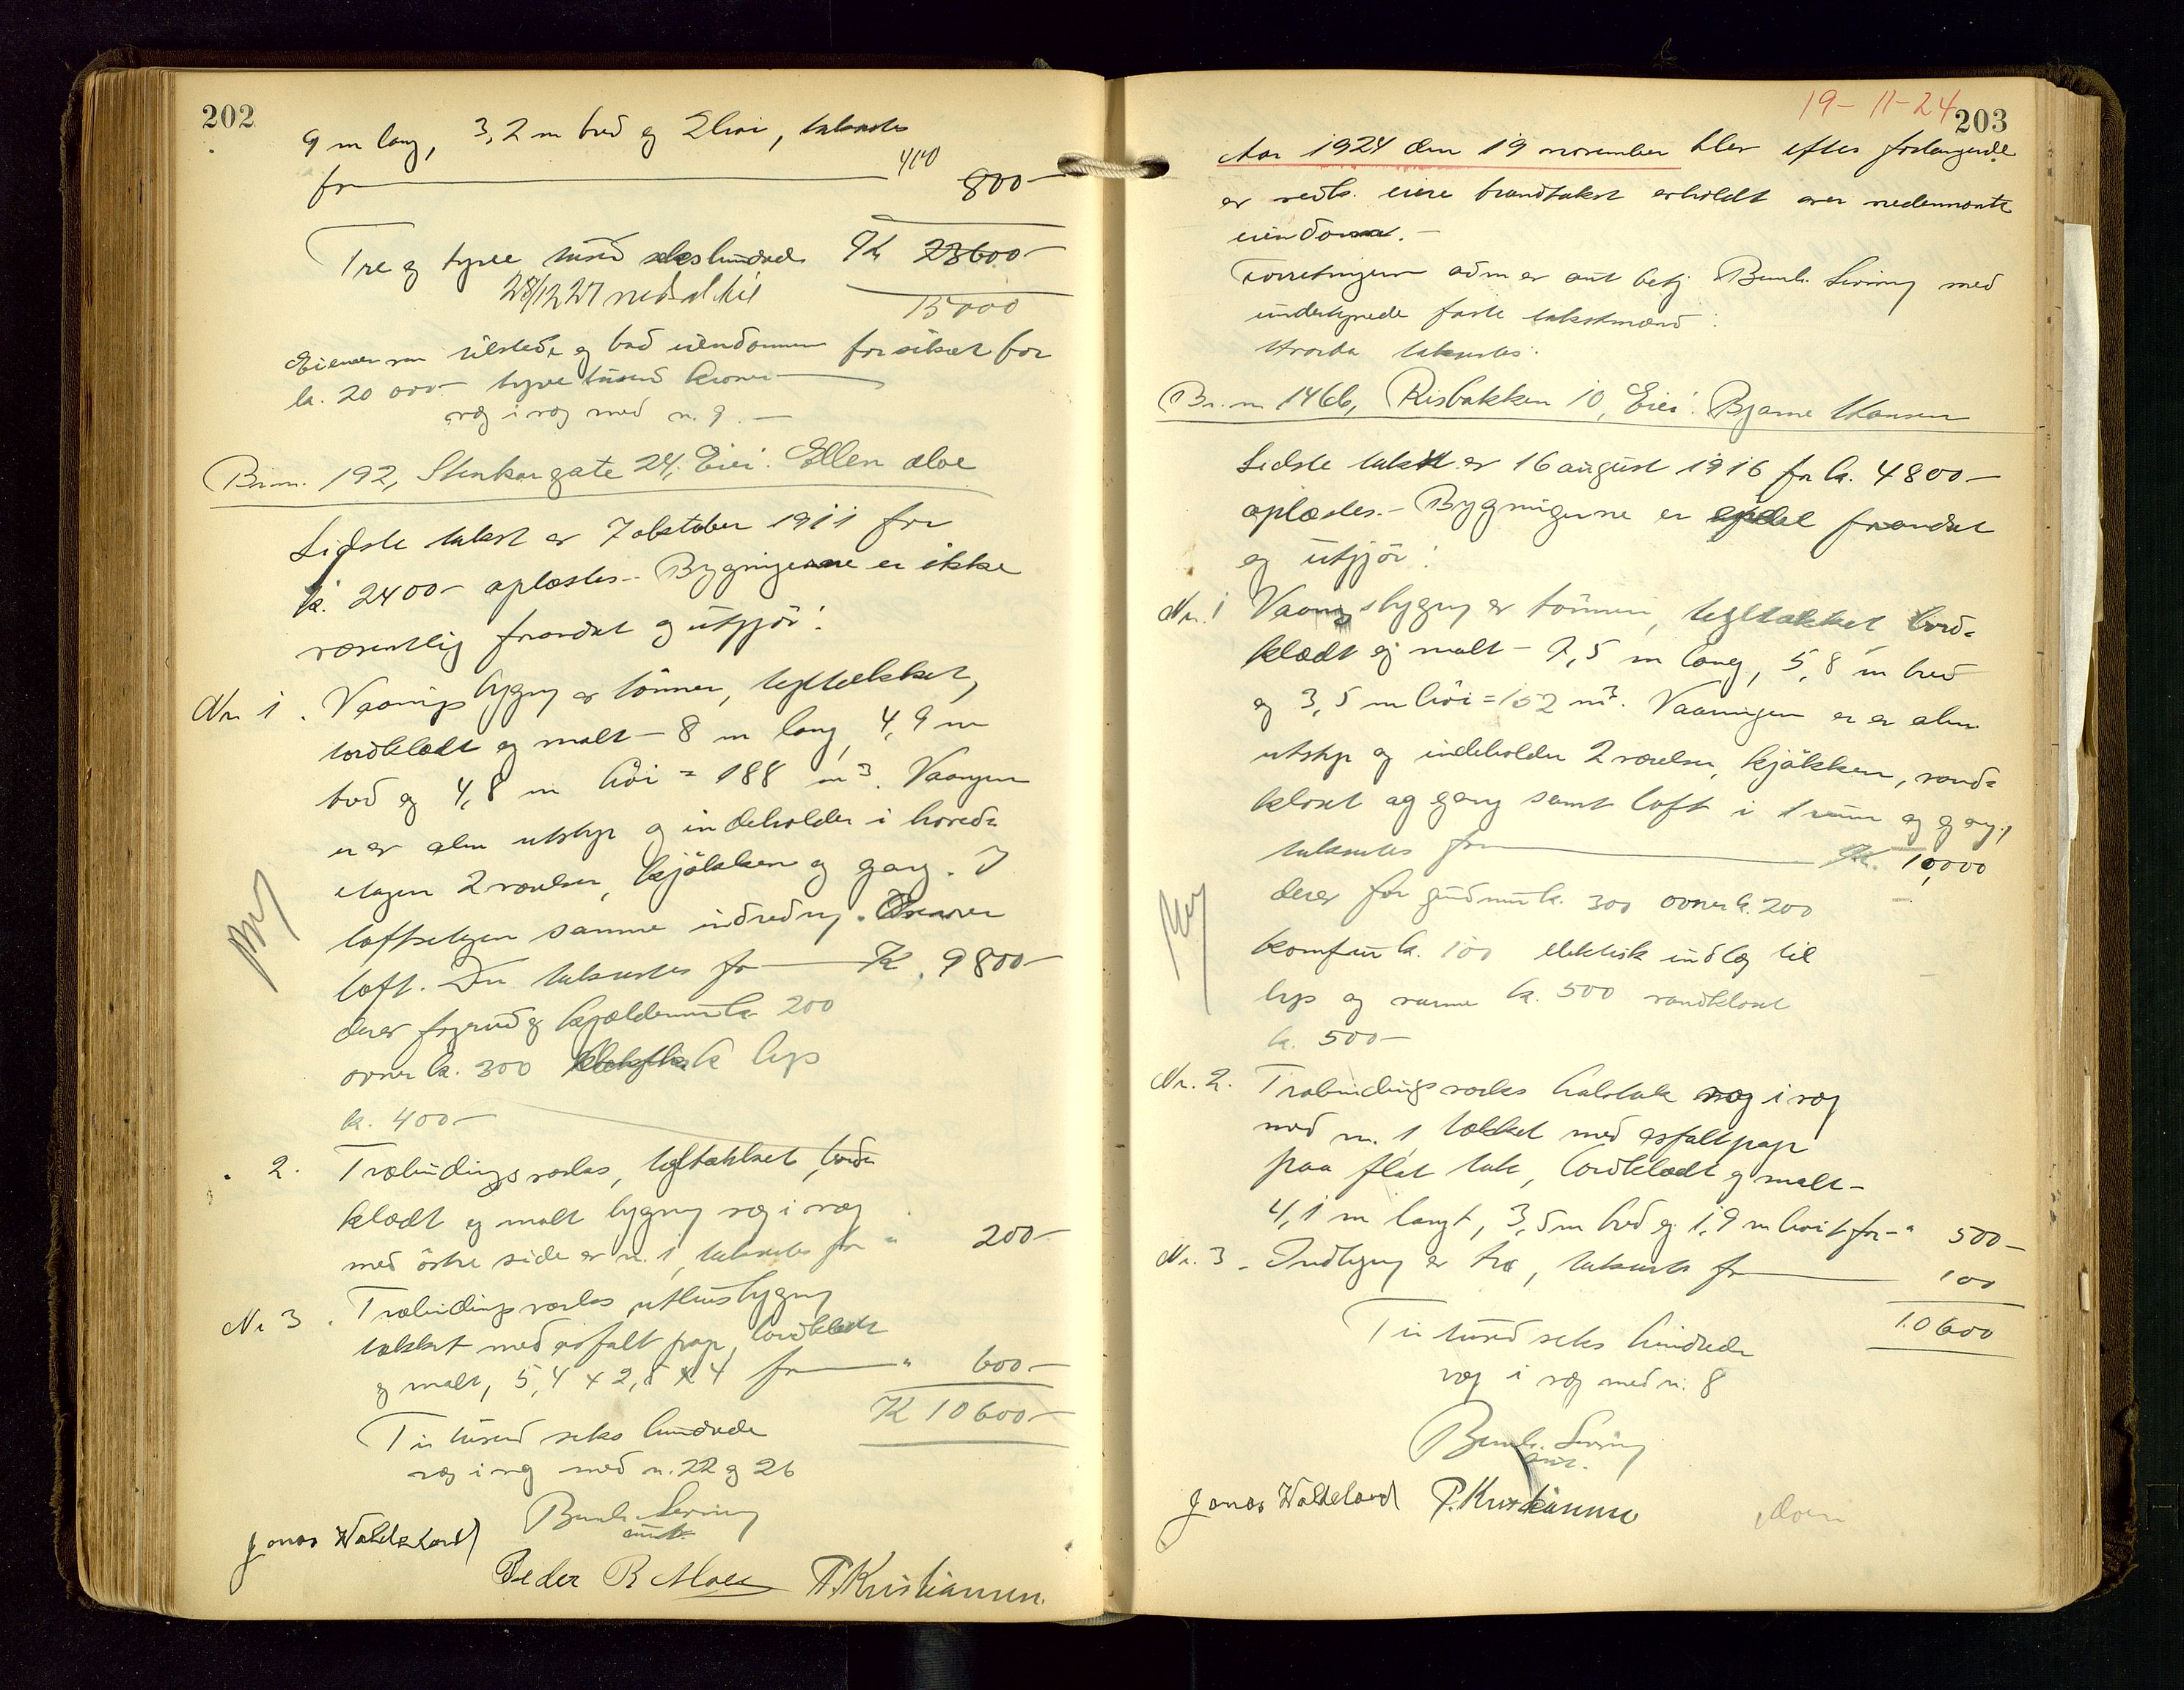 202
9 m lang, 3,2 m bred og 2 høi, takseres
for 400 800-
Tre og tyve tusen sekshundrede Kr 23600-
28/12 27 nedsat til 15000
Eieren var tilstede og bad eiendommen forsikret for
kr. 20 000- tyve tusend kroner
væg i væg med nr. 9. -
Br.nr. 192, Stenkargate 24, Eier: Ellen Aloe
Lidste takst er 7 oktober 1911 for
kr. 2400- oplæstes.- Bygningerne er ikke
væsentlig forandret og utgjør:
Nr 1. Vaaningsbygng er tømmer, tegltækket,
bordklædt og malt - 8 m lang, 4,9 m
bred og 4,8 m høi = 188 m³. Vaangen
er av alm utstyr og indeholder i hoved-
etagen 2 værelser, kjøkken og gang. I
loftsetagen samme indredng. Øverst
loft. Den takseres for Kr. 9800-
derav for grund og kjældermur kr. 200
ovner kr. 300 elektrisk lys
kr. 400-
" 2. Træbindingsverks, tegltækket, bord-
klædt og malt bygng væg i væg
med østre side av nr. 1, takseres for " 200-
Nr 3. Træbindingsverks uthusbygng
tækket med asfalt pap, bordklædt
og malt, 5,4 x 2,8 x 4 for " 600-
Kr 10600-
Ti tusend seks hundrede
væg i væg med nr. 22 og 26
Bernh. Severing
aut.
Jonas Waldeland
Peder R Moe P. Kristiansen.
19-11-24 203
Aar 1924 den 19 november blev efter forlangende
av vedk. eiere brandtakst avholdt over nedennævnte
eiendom.-
Forretningen adm av aut betj Bernh. Severing med
undertegnede faste takstmænd:
Hvorda takseres:
Br.nr 1466, Risbakken 10, Eier: Bjarne Hansen
Lidste takst er 16 august 1916 for kr. 4800-
oplæstes.- Bygningerne er forandret
og utgjør:
Nr. 1 Vaaningsbygng er tømmer, tegltækket bord-
klædt og malt - 7,5 m lang, 5,8 m bred
og 3,5 m høi = 152 m³. Vaaningen er av alm
utstyr og indeholder 2 værelser, kjøkken, vand-
kloset og gang samt loft i 1 rum og gang,
takseres for Kr. 10,000
derav for grundmur kr. 300 ovner kr. 200
komfur kr. 100 elektrisk indlæg til
lys og varme kr. 500 vandkloset
kr. 500-
Nr. 2. Træbindingsverks halvtak væg i væg
med nr. 1 tækket med asfaltpap
paa flat tak, bordklædt og malt-
4,1 m langt, 3,5 m bred og 1,9 m høit for " 500-
Nr. 3. Indhegng av træ, takseres for 100
10600
Ti tusend seks hundrede
væg i væg med nr. 8
Bernh. Severing
aut.
Jonas Waldeland P. Kristiansen